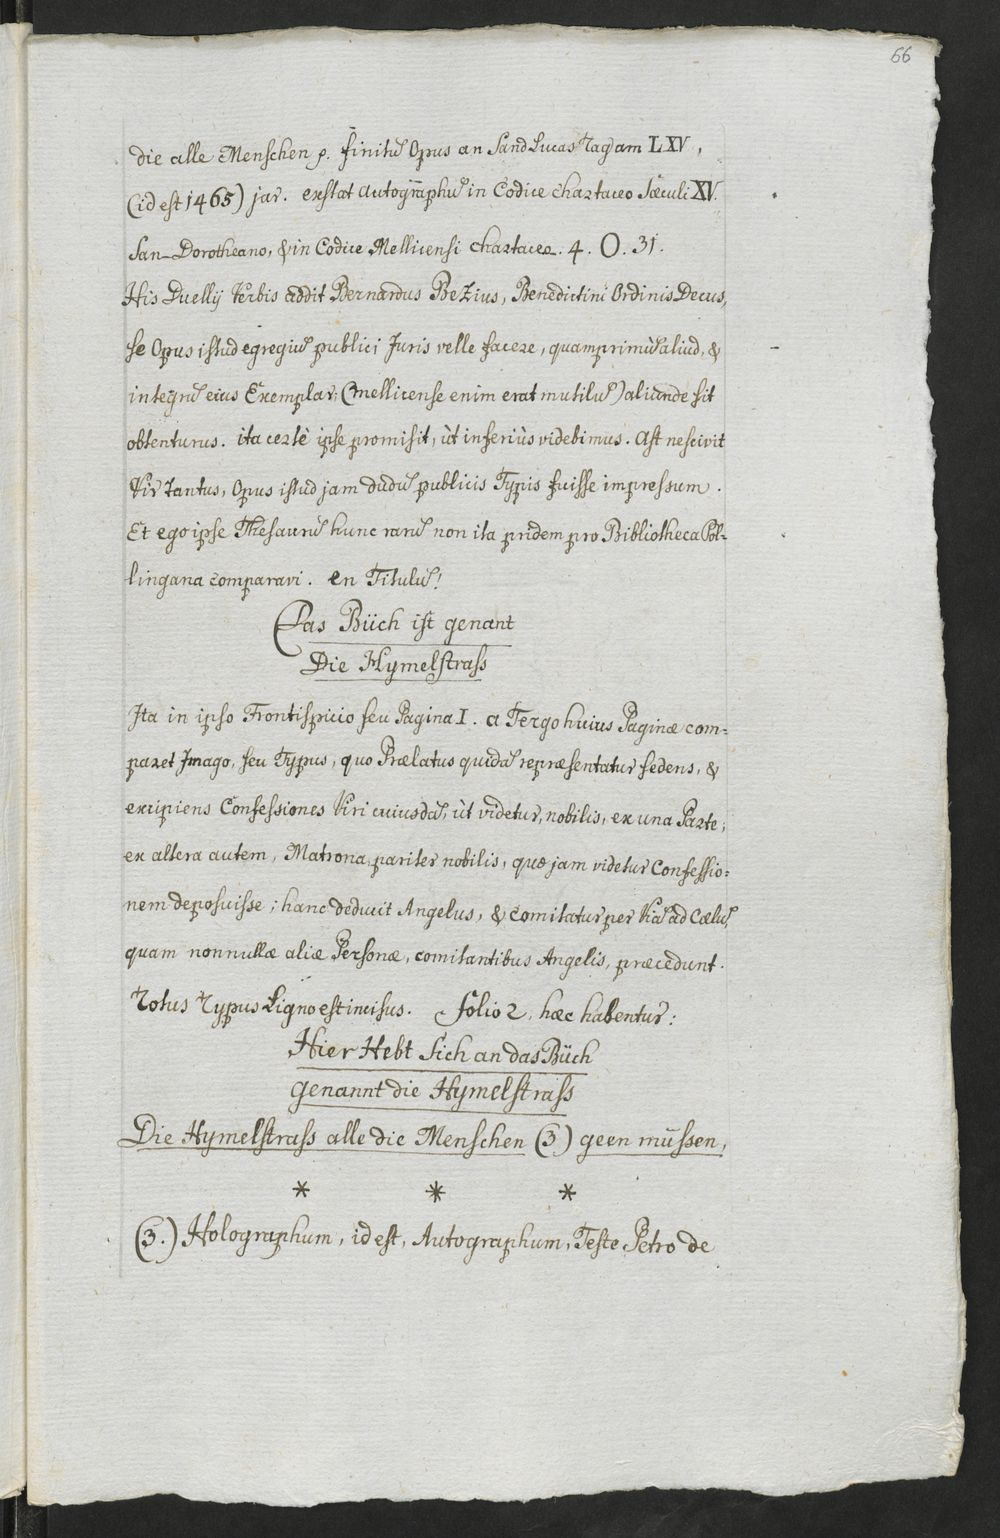 66
die alle Menschen p. finitū Opus an Sand Lucas Tag am LXV,
(id est 1465) jar. exstat autographū in Codice chartaceo Sæculi XV.
San-Dorotheano, & in Codice Mellicensi chartaceo. 4. O. 31.
His Duellij Verbis addit Bernardus Pezius, Benedictini Ordinis Decus,
se Opus istud egregiū publici Juris velle facere, quamprimū aliud, &
integrū eius Exemplar, (mellicense enim erat mutilū) aliunde sit
obtenturus. ita certè ipse promisit, ùt inferiùs videbimus. Ast nescivit
Vir Tantus, Opus istud jam dudū publicis Typis fuisse impressum.
Et ego ipse Thesaurū hunc rarū non ita pridem pro Bibliotheca Pol-
lingana comparavi. en Titulū!
Das Büch ist genant
Die Hymelstrass
Ita in ipso Frontispicio seu Pagina I. a Tergo huius Paginæ com=
paret Imago, seu Typus, quo Prælatus quidā repræsentatur sedens, &
excipiens Confessiones Viri cuiusdā, ùt videtur, nobilis, ex una Parte;
ex altera autem, Matrona pariter nobilis, quæ jam videtur Confessio=
nem deposuisse; hanc deducit Angelus, & comitatur per Viā ad Cælū,
quam nonnullæ aliæ Personæ, comitantibus Angelis, præcedunt.
Totus Typus Ligno est incisus. folio 2, hæc habentur:
Hier Hebt Sich an das Büch
genannt die Hymelstrass
Die Hymelstrass alle die Menschen (3) geen müssen,
* * *
(3.) Holographum, id est, Autographum, Teste Petro de